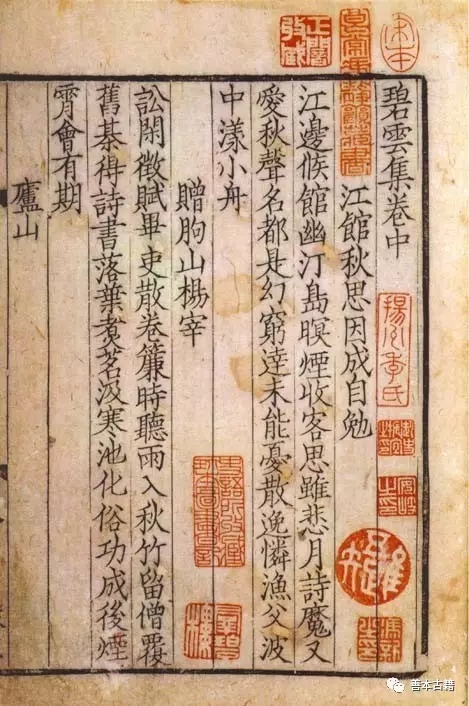 碧雲集卷中
江館秋思因成自勉
江邊候館幽汀島暝煙收客思雖悲月詩魔又
愛秋聲名都是幻窮達未能憂散逸憐漁父波
中漾小舟
贈朐山楊宰
訟閑徵賦畢吏散卷簾時聽雨入秋竹留僧覆
舊棊得詩書落葉煑茗汲寒池化俗功成後煙
霄會有期
廬山
宋本
揚州季氏
善本古籍